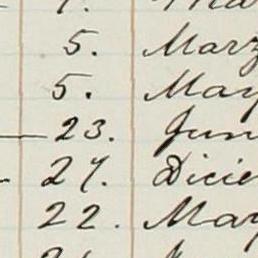 5. Marz
5. May
23. Jun
27. Dicie
22. May